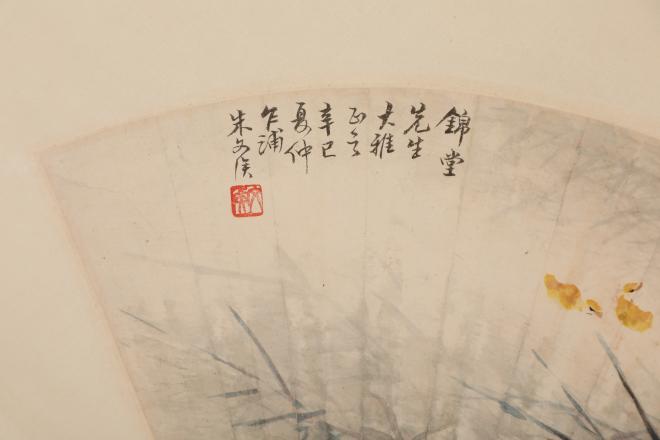 錦堂
先生
大雅
正之
辛巳
夏仲
乍浦
朱文侯